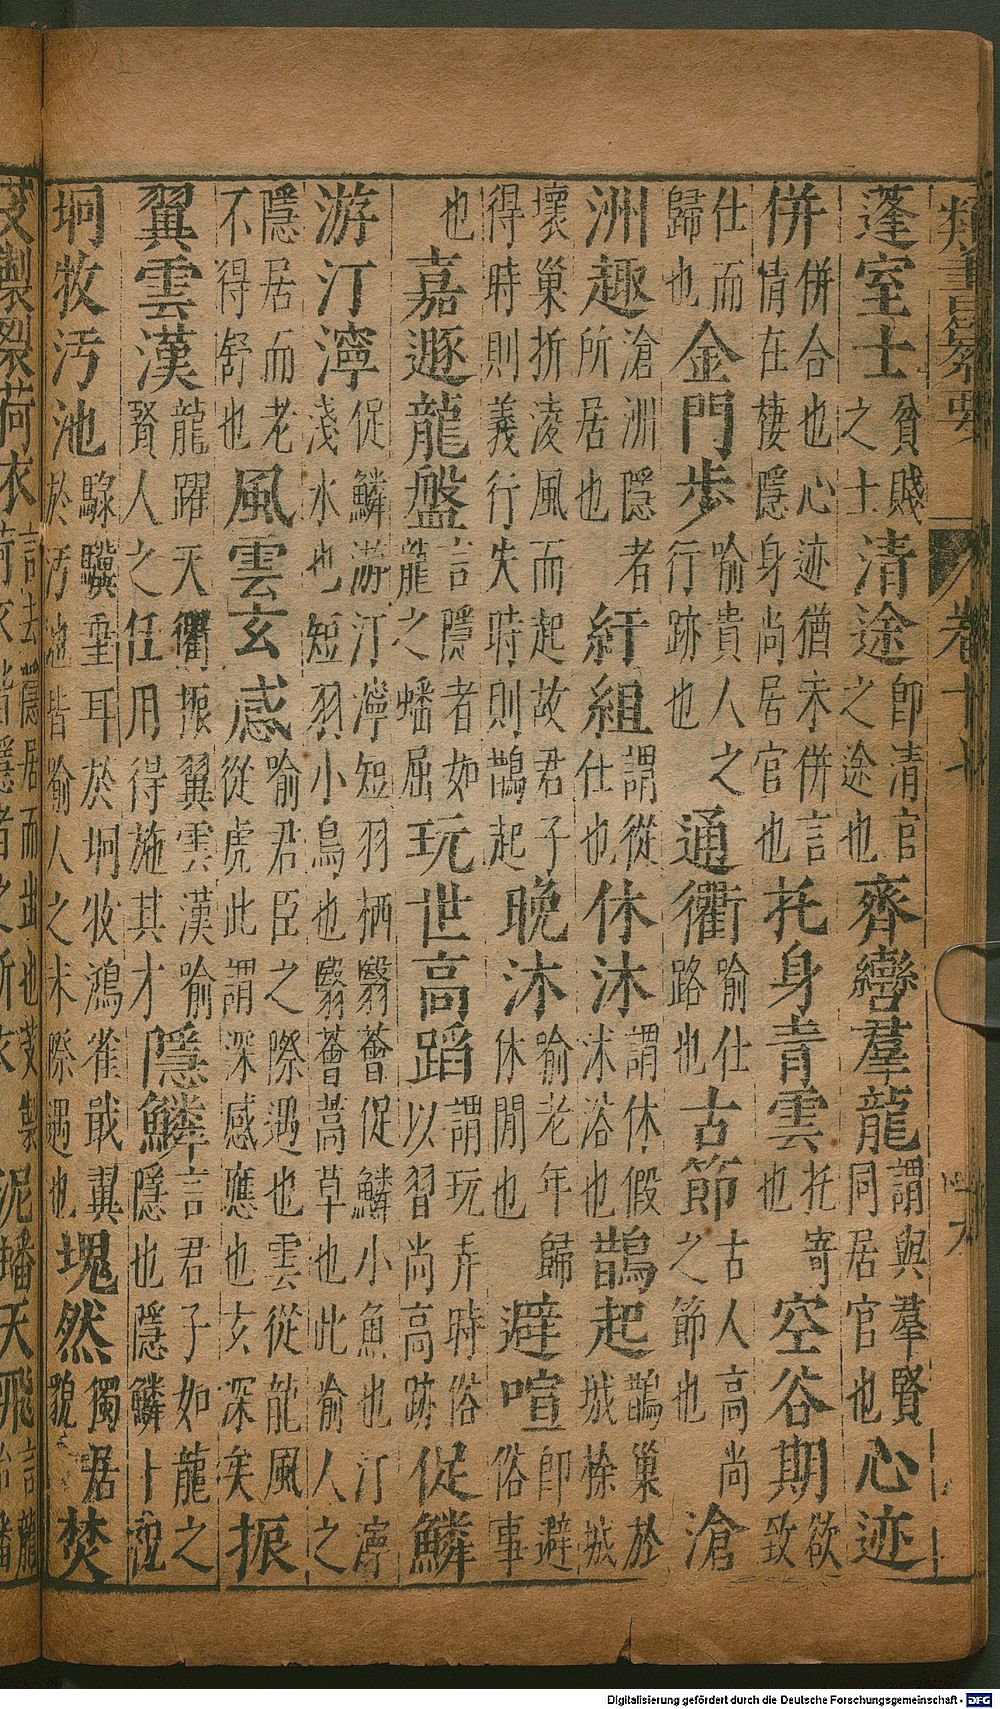 類書纂要 卷十七
蓬室士貧賤之士清途即清官之途也齊轡羣龍謂與羣賢同居官也心迹
併併合也心迹猶未併言情在棲隱身尚居官也托身青雲托寄也空谷期欲致
仕而歸也金門步喻貴人之行跡也通衢喻仕路也古節古人高尚之節也滄
洲趣滄洲隱者所居也紆組謂從仕也休沐謂休假沐浴也鵲起鵲巢於城榆城
壞巢折淩風而起故君子得時則義行失時則鵲起晚沐喻老年歸休閒也避喧即避俗事
也嘉遯龍盤言隱者如龍之蟠屈玩世高蹈謂玩弄時俗以習尚高跡促鱗
游汀濘促鱗游汀濘短羽栖翳薈促鱗小魚也汀濘淺水也短羽小鳥也翳薈蒿草也此喻人之
隱居而老不得舒也風雲玄感喻君臣之際遇也雲從龍風從虎此謂深感應也玄深矣振
翼雲漢龍躍天衢振翼雲漢喻賢人之任用得施其才隱鱗言君子如龍之隱也隱鱗卜祝
坰牧汚池騄驥垂耳於坰牧鴻雀戢翼於汚池皆喻人之未際遇也塊然獨居貌焚
芰製裂荷衣泥蟠天飛
Digitalisierung gefördert durch die Deutsche Forschungsgemeinschaft - DFG